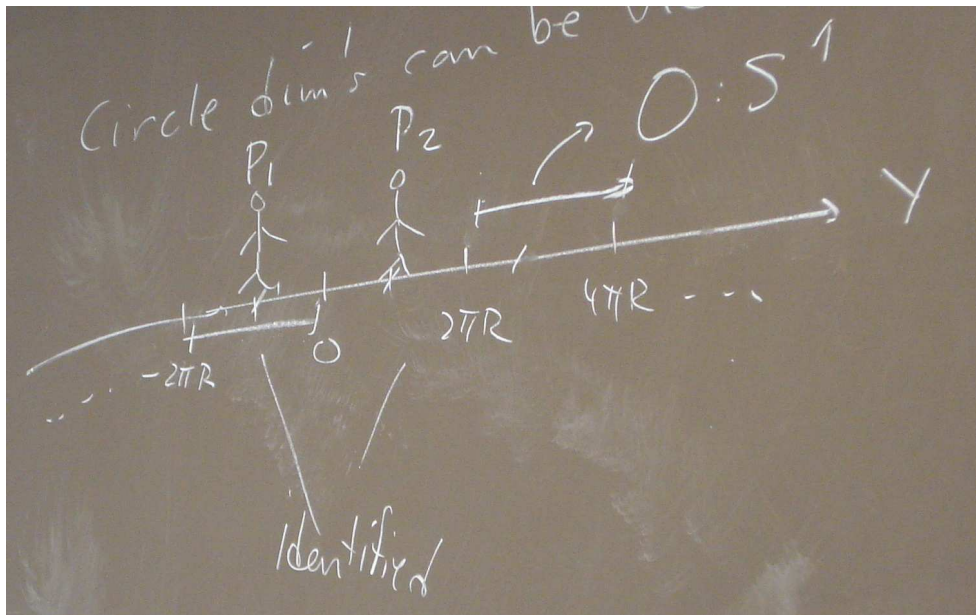 Circle dim's can be
P1 P2 O : S^1
Y
-2πR 0 2πR 4πR ---
Identified